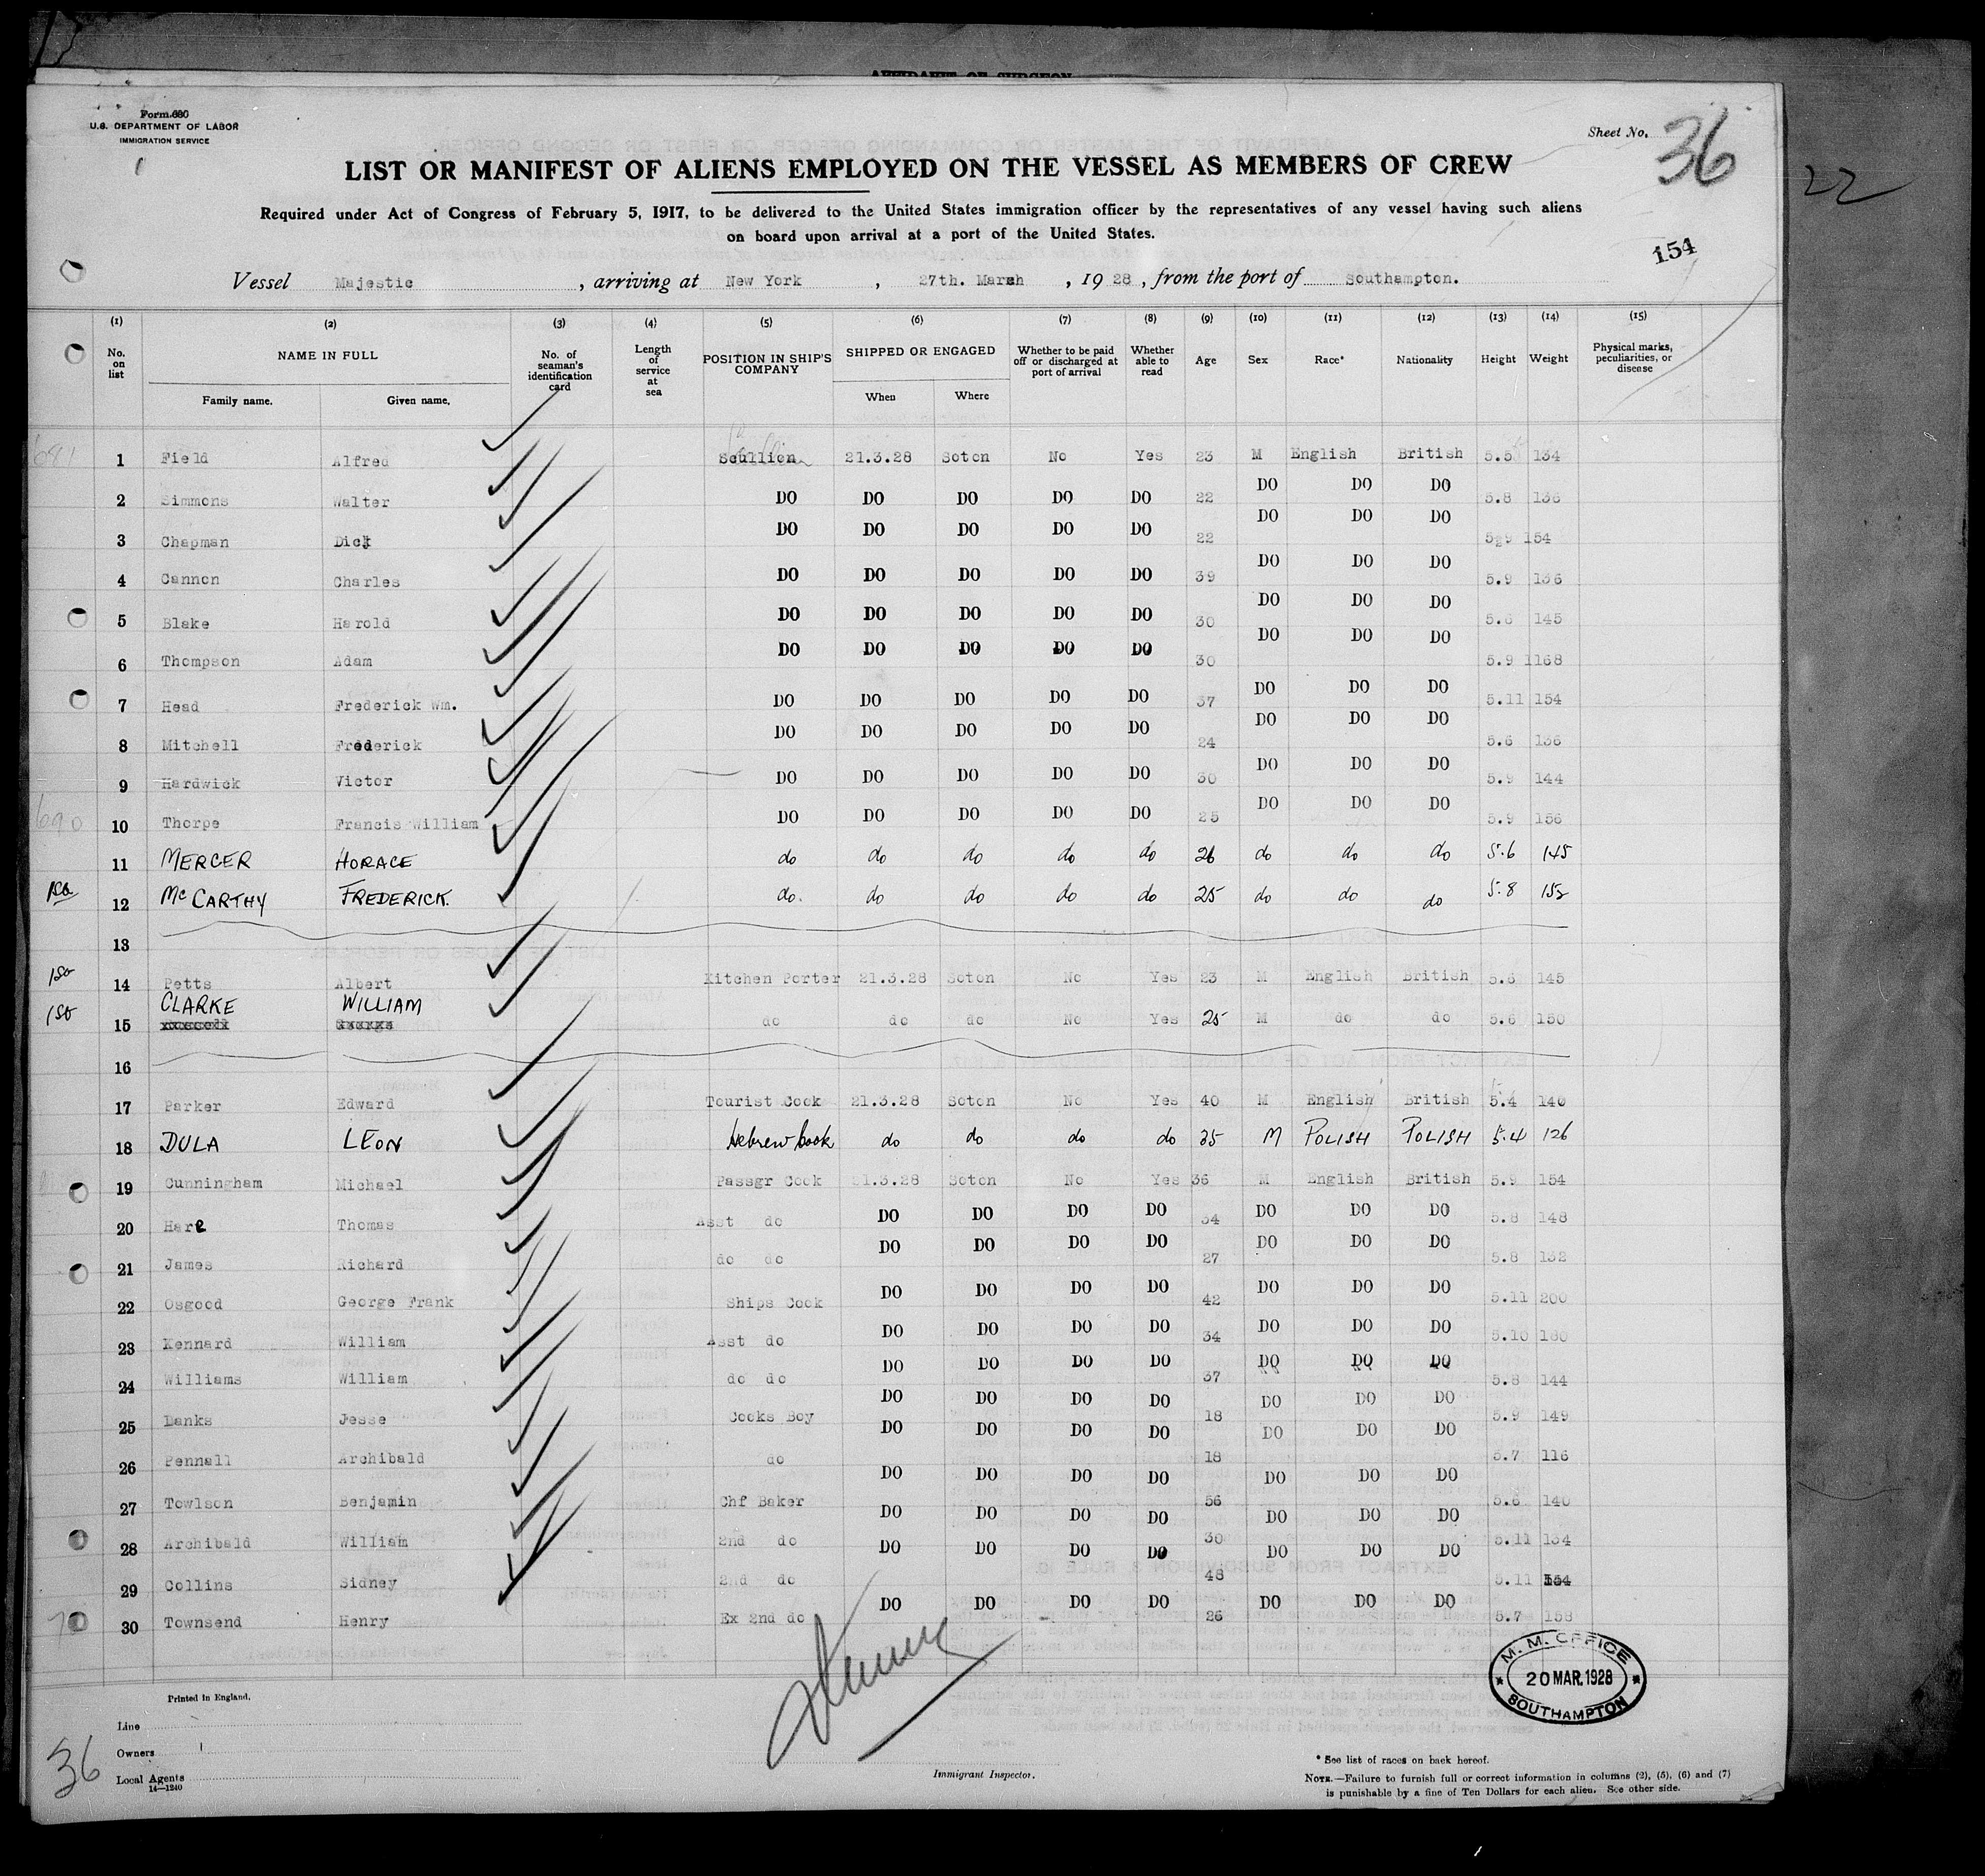 AFFIDAVIT OF SURGEON
Form 680
U.S. DEPARTMENT OF LABOR
IMMIGRATION SERVICE
Sheet No. 36
22
LIST OR MANIFEST OF ALIENS EMPLOYED ON THE VESSEL AS MEMBERS OF CREW
Required under Act of Congress of February 5, 1917, to be delivered to the United States immigration officer by the representatives of any vessel having such aliens
on board upon arrival at a port of the United States.
154
Vessel Majestic , arriving at New York , 27th. March , 19 28 , from the port of Southampton.
(1) (2) (3) (4) (5) (6) (7) (8) (9) (10) (11) (12) (13) (14) (15)
No. on list NAME IN FULL No. of seaman's identification card Length of service at sea POSITION IN SHIP'S COMPANY SHIPPED OR ENGAGED Whether to be paid off or discharged at port of arrival Whether able to read Age Sex Race* Nationality Height Weight Physical marks, peculiarities, or disease
Family name. Given name. When Where
681 1 Field Alfred Scullion 21.3.28 Soton No Yes 23 M English British 5.5 134
2 Simmons Walter DO DO DO DO DO 22 DO DO DO 5.8 136
3 Chapman Dick DO DO DO DO DO 22 DO DO DO 5.9 154
4 Cannon Charles DO DO DO DO DO 39 DO DO DO 5.9 136
5 Blake Harold DO DO DO DO DO 30 DO DO DO 5.6 145
6 Thompson Adam DO DO DO DO DO 30 DO DO DO 5.9 168
7 Head Frederick Wm. DO DO DO DO DO 37 DO DO DO 5.11 154
8 Mitchell Frederick DO DO DO DO DO 24 DO DO DO 5.6 136
9 Hardwick Victor DO DO DO DO DO 30 DO DO DO 5.9 144
690 10 Thorpe Francis William DO DO DO DO DO 25 DO DO DO 5.9 156
11 MERCER HORACE do do do do do 26 do do do 5.6 145
12 McCARTHY FREDERICK. do. do do do do 25 do do do 5.8 152
13
14 Petts Albert Kitchen Porter 21.3.28 Soton No Yes 23 M English British 5.6 145
15 CLARKE WILLIAM do do do No Yes 25 M do do 5.6 150
16
17 Parker Edward Tourist Cook 21.3.28 Soton No Yes 40 M English British 5.4 140
18 DULA LEON Hebrew Cook do do do do 35 M POLISH POLISH 5.4 126
19 Cunningham Michael Passgr Cook 21.3.28 Soton No Yes 36 M English British 5.9 154
20 Hare Thomas Asst do DO DO DO DO 34 DO DO DO 5.8 148
21 James Richard do do DO DO DO DO 27 DO DO DO 5.8 132
22 Osgood George Frank Ships Cook DO DO DO DO 42 DO DO DO 5.11 200
23 Kennard William Asst do DO DO DO DO 34 DO DO DO 5.10 180
24 Williams William do do DO DO DO DO 37 DO DO DO 5.8 144
25 Banks Jesse Cooks Boy DO DO DO DO 18 DO DO DO 5.9 149
26 Pennell Archibald do DO DO DO DO 18 DO DO DO 5.7 116
27 Towlson Benjamin Chf Baker DO DO DO DO 56 DO DO DO 5.6 140
28 Archibald William 2nd do DO DO DO DO 30 DO DO DO 5.11 134
29 Collins Sidney 2nd do DO DO DO DO 48 DO DO DO 5.11 154
30 Townsend Henry Ex 2nd do DO DO DO DO 26 DO DO DO 5.7 158
M. M. OFFICE
20 MAR. 1928
SOUTHAMPTON
Printed in England.
Line
Owners
Local Agents
14—1240
36
Immigrant Inspector.
* See list of races on back hereof.
NOTE.—Failure to furnish full or correct information in columns (2), (5), (6) and (7)
is punishable by a fine of Ten Dollars for each alien. See other side.